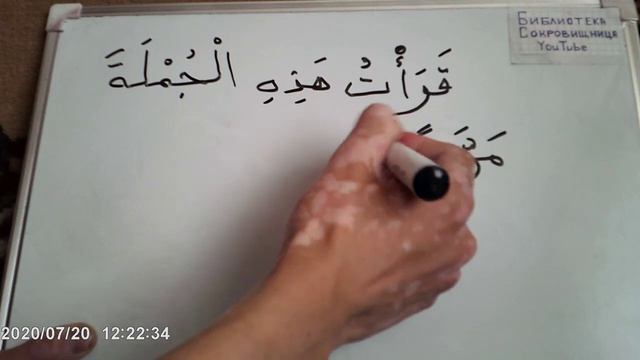 Библиотека
Сокровищница
YouTube
قَرَأْتُ هَذِهِ الْجُمْلَةَ
2020/07/20 12:22:34